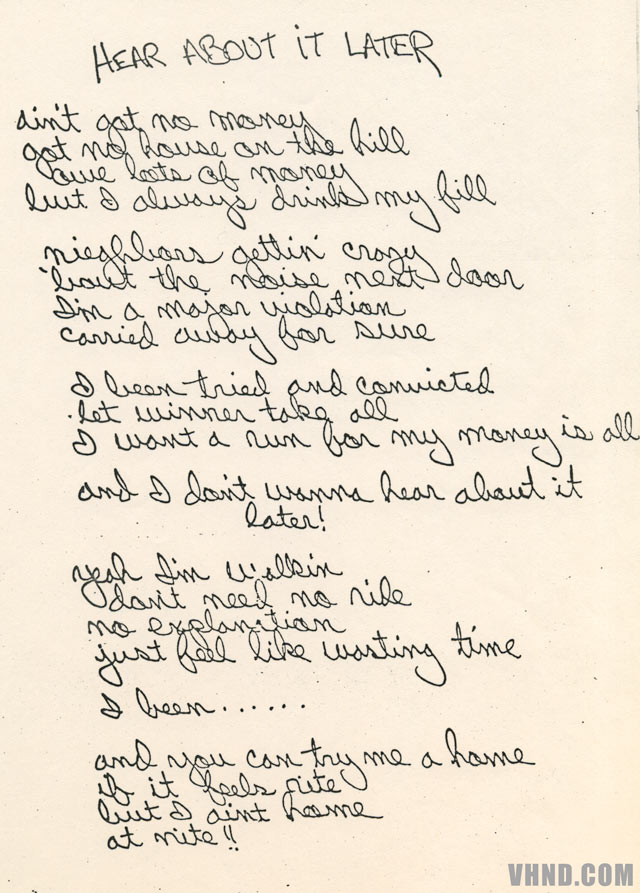 HEAR ABOUT IT LATER
ain't got no money
got no house on the hill
owe lots of money
but I always drink my fill
nieghbors gettin' crazy
'bout the noise next door
I'm a major violation
carried away for sure
I been tried and convicted
let winner take all
I want a run for my money is all
and I don't wanna hear about it
later!
yeah I'm walkin
don't need no ride
no explanition
just feel like wasting time
I been......
and you can try me a home
if it feels rite
but I aint home
at nite!!
VHND.COM